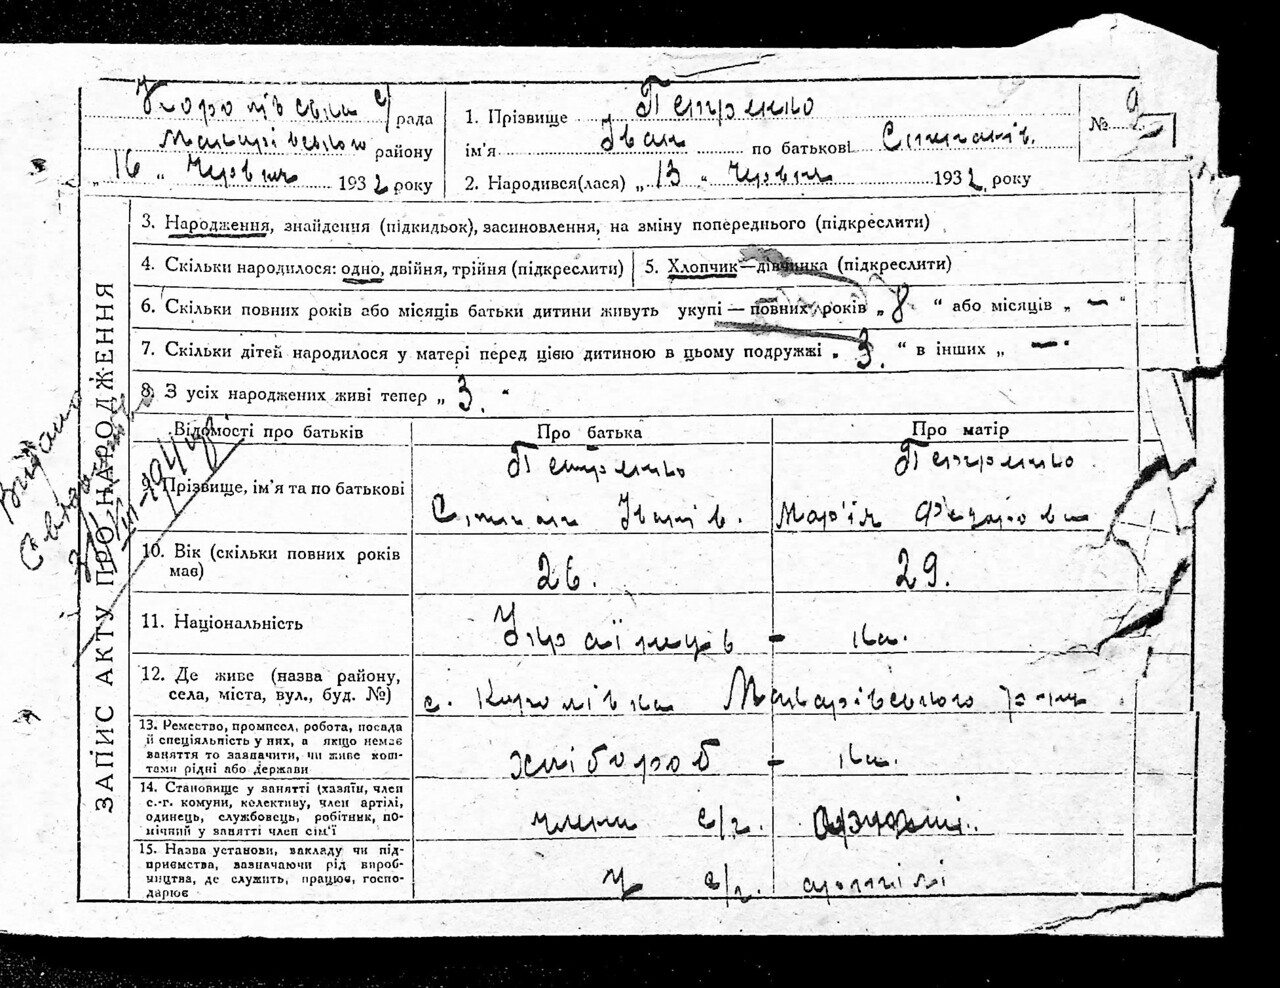 Королівська с/рада
Макарівського району
„ 16 " Червня 1932 року
1. Прізвище Петренко
ім'я Іван по батькові Степанів.
2. Народився(лася) „ 13 " Червня 1932 року
№ 9
ЗАПИС АКТУ ПРО НАРОДЖЕННЯ
3. Народження, знайдення (підкидьок), засиновлення, на зміну попереднього (підкреслити)
4. Скільки народилося: одно, двійня, трійня (підкреслити)
5. Хлопчик—дівчинка (підкреслити)
6. Скільки повних років або місяців батьки дитини живуть укупі — повних років „ 8 " або місяців „ — "
7. Скільки дітей народилося у матері перед цією дитиною в цьому подружжі „ 3. " в інших „ — "
8. З усіх народжених живі тепер „ 3. "
Відомості про батьків
Про батька
Про матір
9. Прізвище, ім'я та по батькові
Петренко
Степан Іванів.
Петренко
Мар'їя Федоровна
10. Вік (скільки повних років має)
26.
29.
11. Національність
Українець - ка.
12. Де живе (назва району,
села, міста, вул., буд. №)
с. Королівка Макарівського р-ну
13. Ремество, промисел, робота, посада
й спеціяльність у них, а якщо немає
заняття то зазначити, чи живе кош-
тами рідні або держави
хлібороб - ка.
14. Становище у занятті (хазяїн, член
с.-г. комуни, колективу, член артілі,
одинець, службовець, робітник, по-
мічний у занятті член сім'ї
члени с/г. артілі.
15. Назва установи, закладу чи під-
приємства, зазначаючи рід вироб-
ництва, де служить, працює, госпо-
дарює
у с/г. артілі
Видано